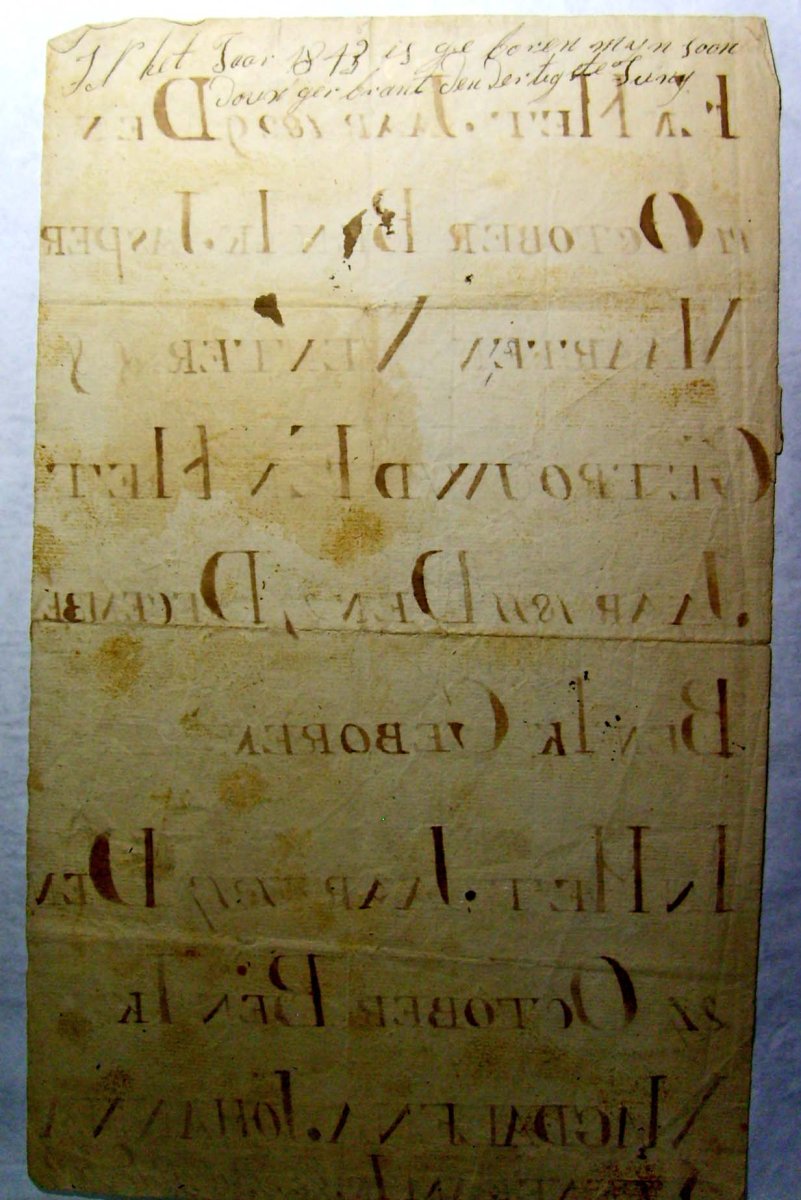 IN het Jaar 1843 is ge boren myn soon
douw ger brant den dertig ste Juny
EN HET. JAAR 1829 DEN
OCTOBER BEN IK. JASPER
MAARTEN VENTER
GETROUWD EN HET
JAAR DEN DECEMBE
BEN IK GEBOREN
IN HET. JAAR DEN
OCTOBER BEN IK
MAGDALENA. JOHANNA